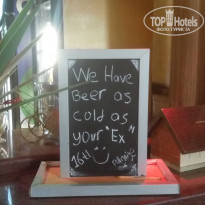 TOP Hotels
ФОТО ТУРИСТА
We Have
Beer as
cold as
your "Ex"